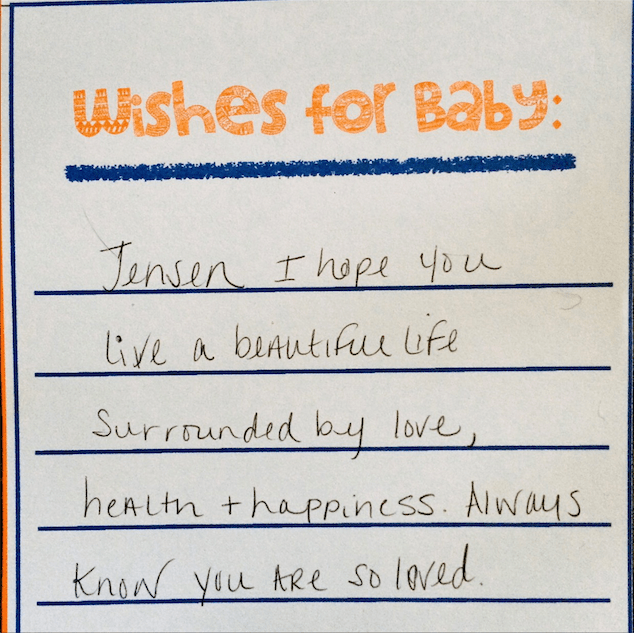 Wishes for Baby:
Jensen I hope you
live a beautiful life
surrounded by love,
health + happiness. Always
know you are so loved.